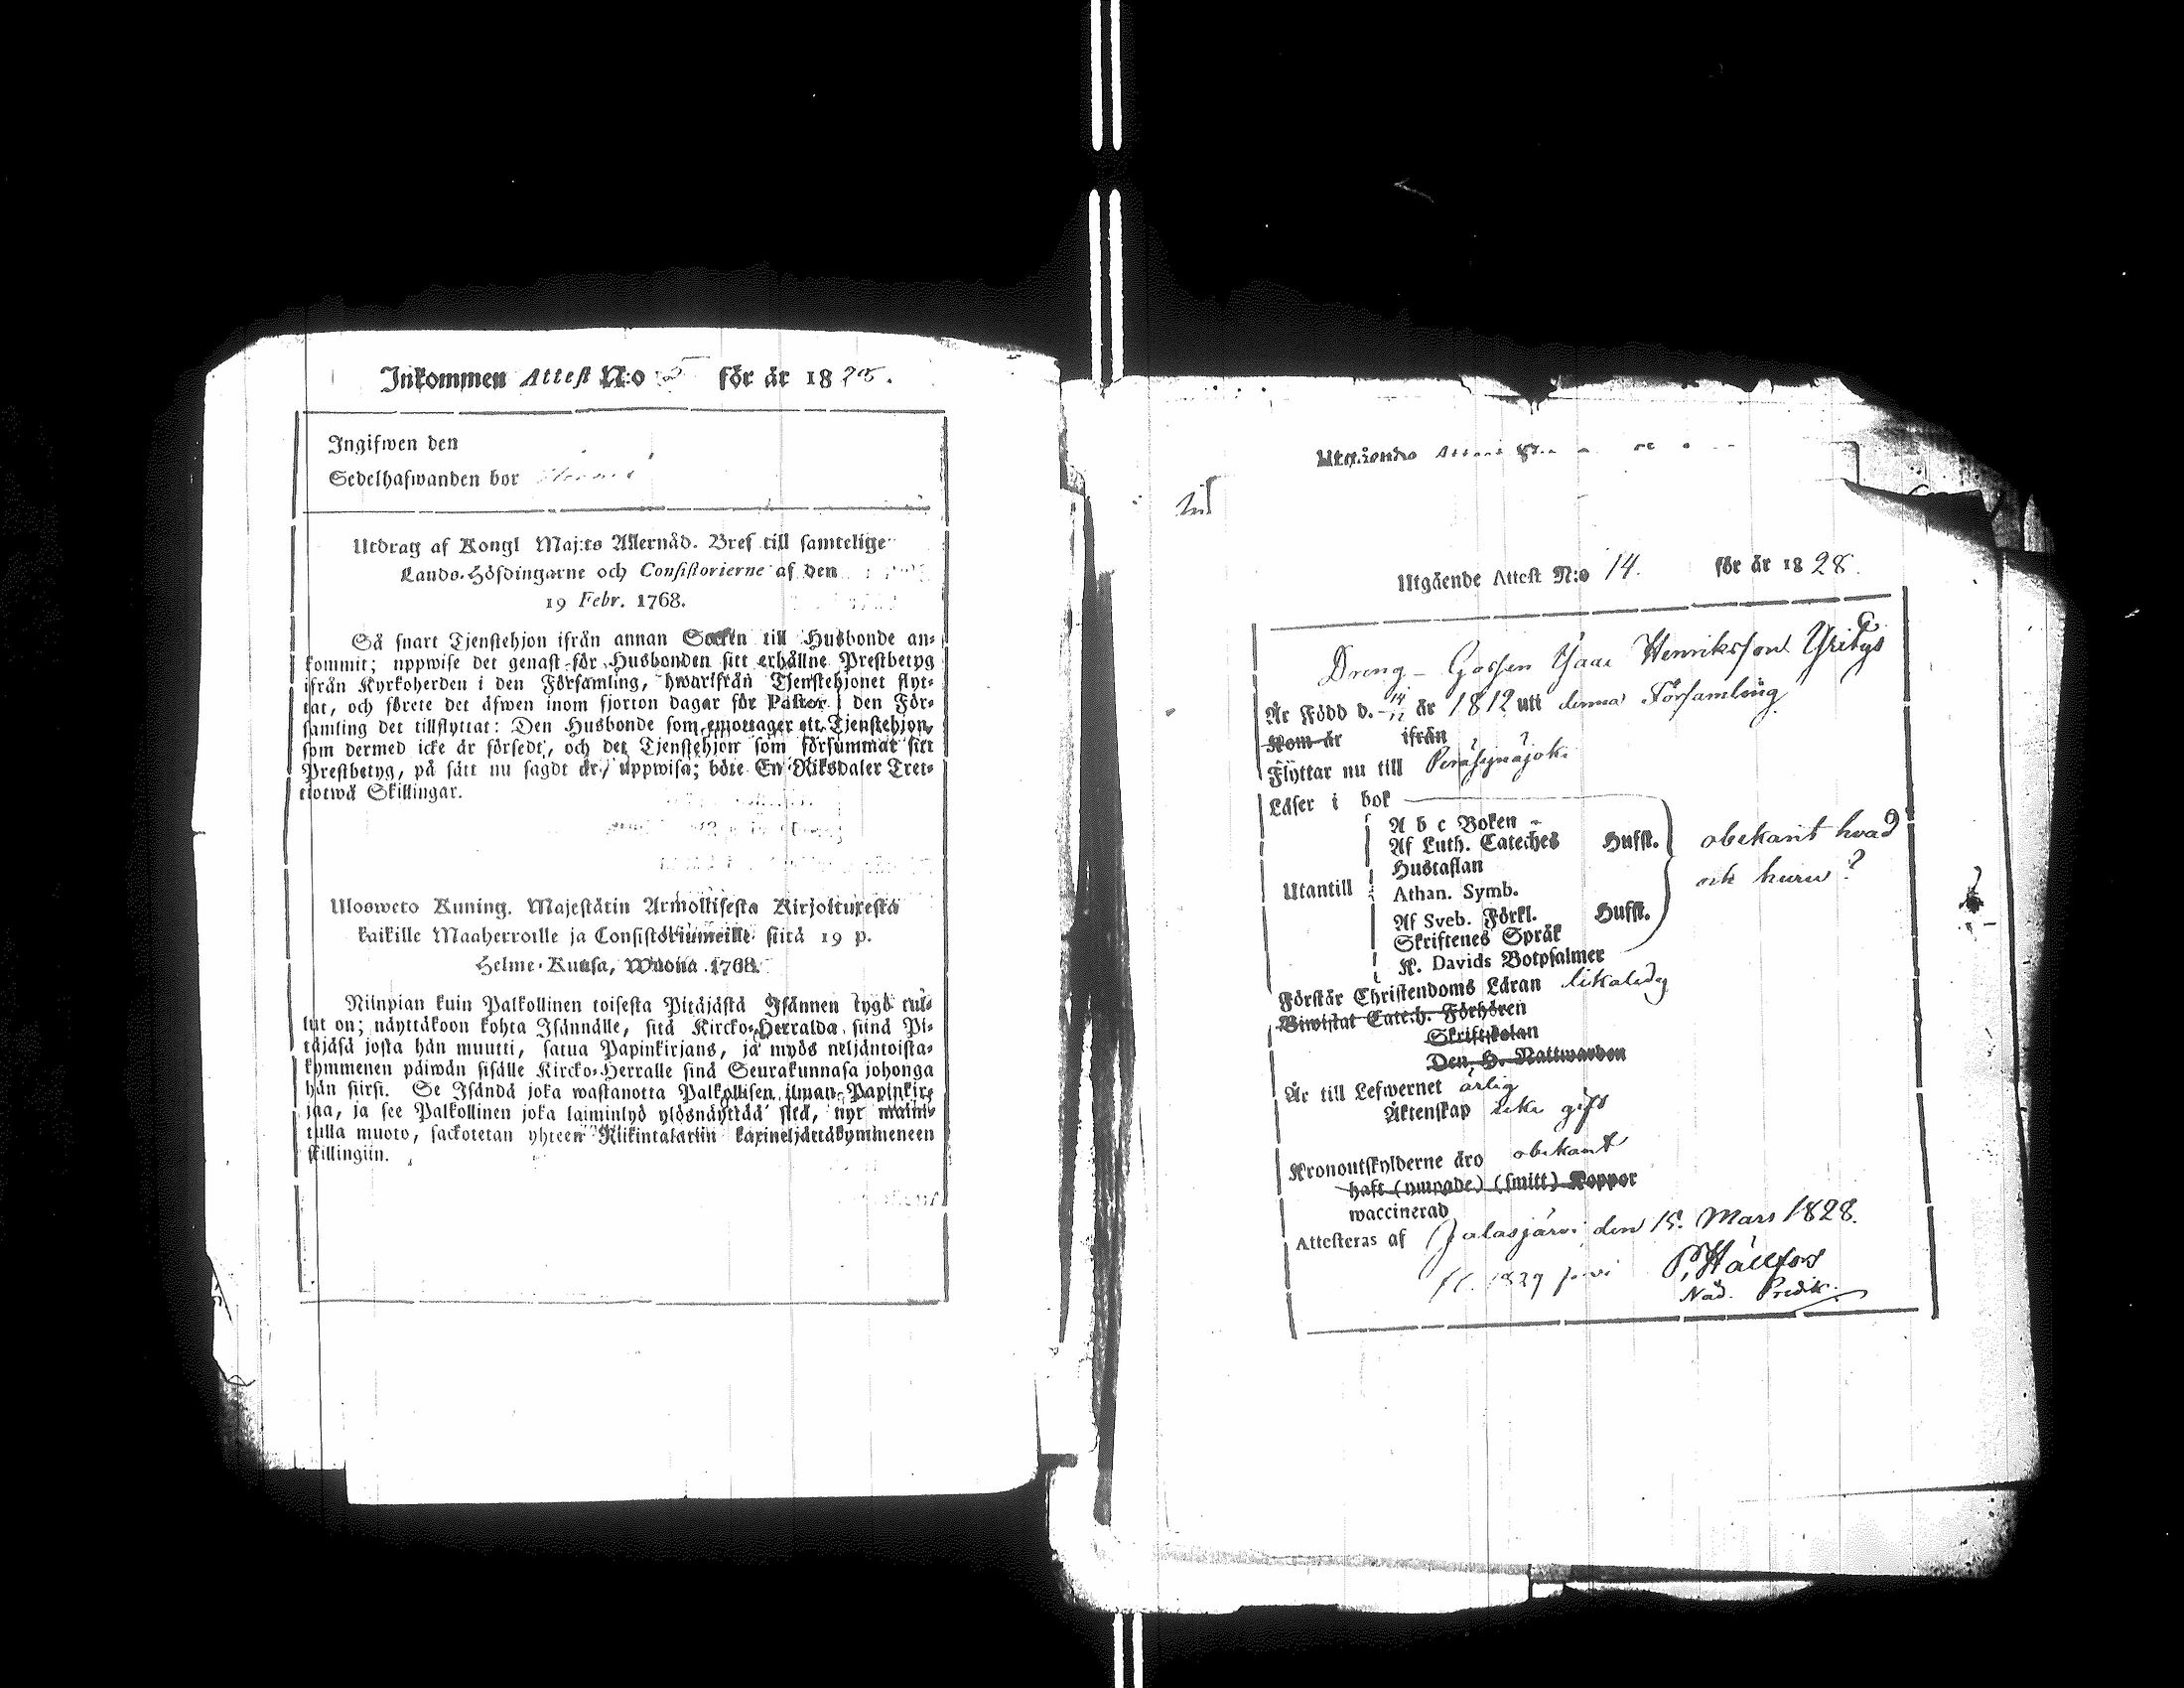 Inkommen Attest N:o för år 18
Ingifwen den
Sedelhafwanden bor
Utdrag af Kongl Maj:ts Allernåd. Bref till samtelige
Lands-Höfdingarne och Consistorierne af den
19 Febr. 1768.
Så snart Tjenstehjon ifrån annan Socken till Husbonde an-
kommit; uppwise det genast för Husbonden sitt erhållne Prestbetyg
ifrån Kyrkoherden i den Församling, hwarifrån Tjenstehjonet flyt-
tat, och förete det äfwen inom fjorton dagar för Pastor i den För-
samling det tillflyttat: Den Husbonde som emottager ett Tjenstehjon,
som dermed icke är försedt, och det Tjenstehjon som försummat sitt
Prestbetyg, på sätt nu sagdt är, uppwisa; böte En Riksdaler Tret-
tiotwå Skillingar.
Ulosweto Kuning. Majestätin Armollisesta Kirjoituxesta
kaikille Maaherroille ja Consistoriumeille siitä 19 p.
Helme-Kuusa, Wuona 1768.
Niinpian kuin Palkollinen toisesta Pitäjästä Isännen tygö tul-
lut on; näyttäkoon kohta Isännälle, sitä Kircko-Herralda siinä Pi-
täjäsä josta hän muutti, saatua Papinkirjans, ja myös neljäntoista-
kymmenen päiwän sisälle Kircko-Herralle sinä Seurakunnasa johonga
hän siirsi. Se Isändä joka wastanotta Palkollisen ilman Papinkir-
jaa, ja see Palkollinen joka laiminlyö ylösnäyttää sitä, nyt maini-
tulla muoto, sackotetan yhteen Riikintalariin kaxineljättäkymmeneen
skillingiin.
Utgående Attest
Utgående Attest N:o 14. för år 1828.
Dreng-Gossen Isaac Henriksson Yritys
Är Född d. 14/12 år 1812 uti denna Församling
Kom år ifrån
Flyttar nu till Peräseinäjoki
Läser i bok
A b c Boken
Af Luth. Cateches Hufst.
Hustaflan
Utantill Athan. Symb.
Af Sveb. Förkl. Hufst.
Skriftenes Språk
K. Davids Botpsalmer
obekant hvad
och huru?
Förstår Christendoms Läran likaledes
Biwistat Catech. Förhören
Skriftskolan
Den H. Nattwarden
Är till Lefwernet ärlig
Äktenskap icke gift
Kronoutskylderne äro obekant
haft (ympade) (smitt) Koppor
waccinerad
Attesteras af Jalasjärvi den 15. Mars 1828.
P. Hällfors
Nåd. Predik.